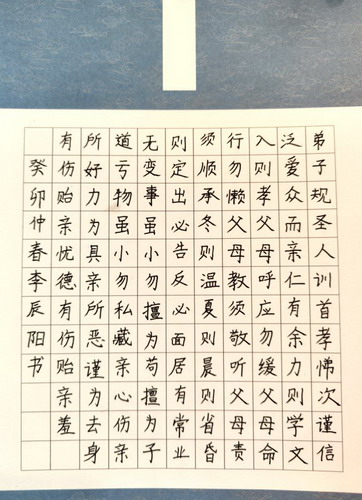 弟子规圣人训首孝悌次谨信
泛爱众而亲仁有余力则学文
入则孝父母呼应勿缓父母命
行勿懒父母教须敬听父母责
须顺承冬则温夏则晨则省昏
则定出必告反必面居有常业
无变事虽小勿擅为苟擅为子
道亏物虽小勿私藏亲心伤亲
所好力为具亲所恶谨为去身
有伤贻亲忧德有伤贻亲羞
癸卯仲春李辰阳书